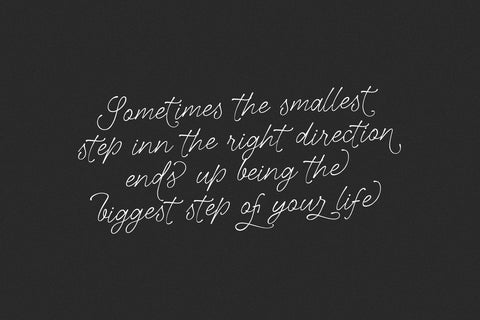 Sometimes the smallest
step inn the right direction
ends up being the
biggest step of your life